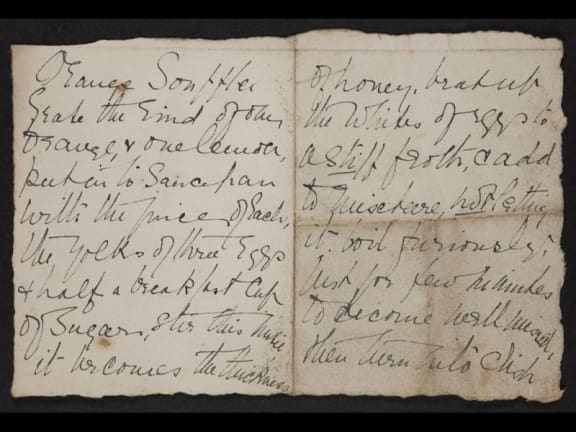 Orange Souffles
Grate the rind of one
Orange, & one lemon,
put in to Saucepan
with the juice of each,
the yolks of three Eggs
& half a breakfast Cup
of Sugar, stir this
it becomes the thickness
of honey. beat up
the Whites of Eggs to
a stiff froth, & add
to mixture, not letting
it boil furiously;
Just for few minutes
to become well mixed,
then turn into dish